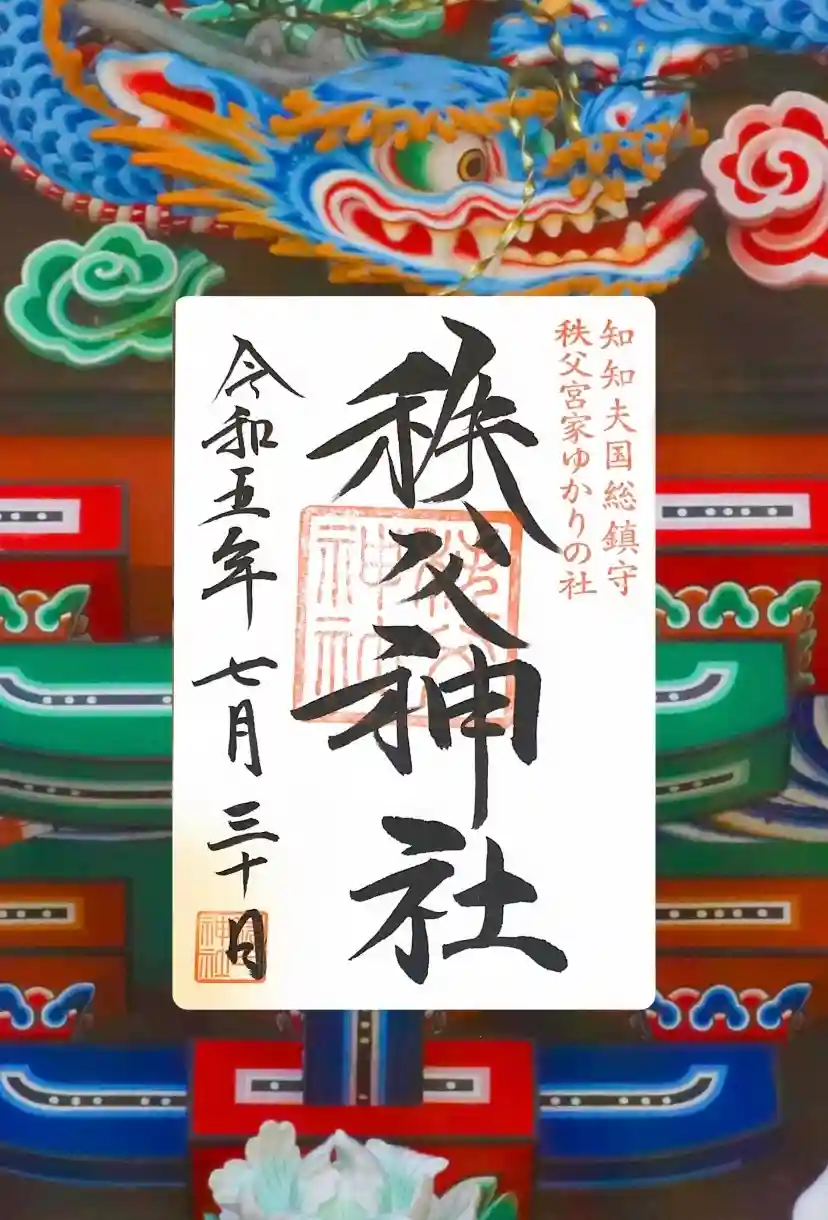 知知夫国総鎮守
秩父宮家ゆかりの社
秩父神社
秩父神社
令和五年七月三十日
神社